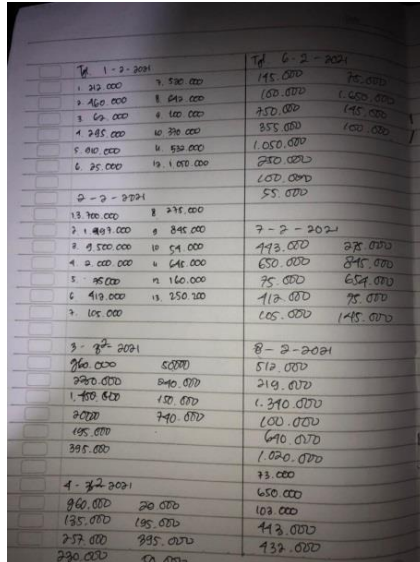 Tgl. 1-2-2021
1. 212.000 7. 520.000
2. 460.000 8. 642.000
3. 62.000 9. 100.000
4. 295.000 10. 370.000
5. 910.000 11. 532.000
6. 25.000 12. 1.050.000
2-2-2021
13.700.000 8. 275.000
2. 1.997.000 9. 845.000
3. 9.500.000 10. 54.000
4. 2.000.000 11. 645.000
5. 95.000 12. 160.000
6. 412.000 13. 250.200
7. 105.000
3-2-2021
960.000 50000
220.000 240.000
1.450.000 150.000
20000 740.000
195.000
395.000
4-2-2021
960.000 20.000
135.000 195.000
257.000 395.000
230.000
Tgl 6-2-2021
195.000 75.000
100.000 1.650.000
750.000 195.000
355.000 100.000
1.050.000
250.000
100.000
55.000
7-2-2021
443.000 275.000
650.000 845.000
75.000 654.000
412.000 95.000
105.000 145.000
8-2-2021
512.000
219.000
1.390.000
100.000
690.000
1.020.000
73.000
650.000
102.000
443.000
432.000